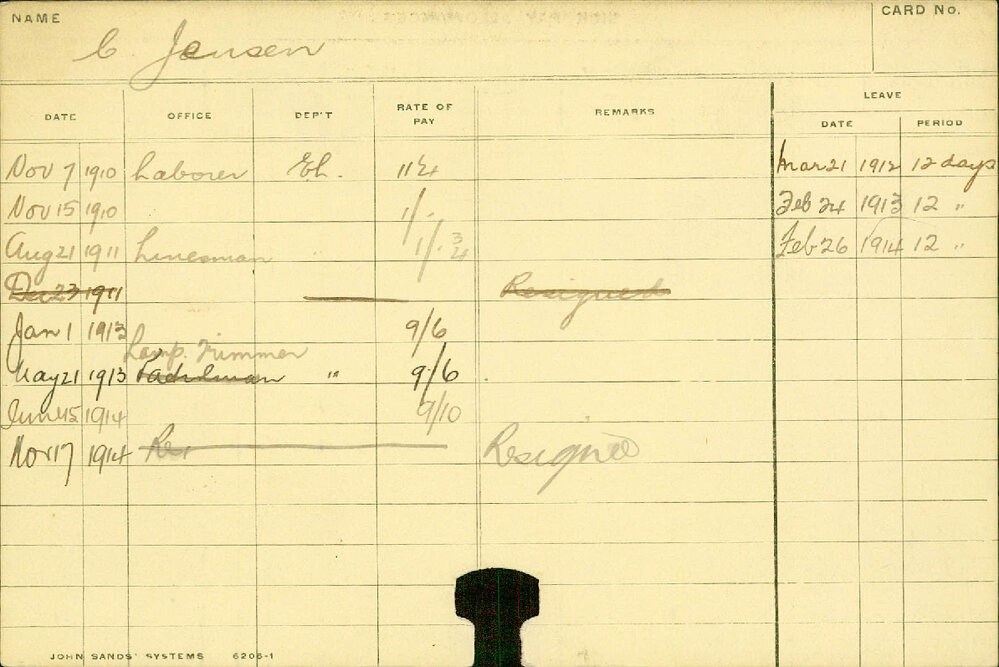 NAME
CARD No.
C. Jensen
LEAVE
DATE OFFICE DEP'T RATE OF PAY REMARKS DATE PERIOD
Nov 7 1910 Laborer El. Mar 21 1912 12 days
Nov 15 1910 1/- Feb 24 1913 12 "
Aug 21 1911 Linesman " 1/- 3/4 Feb 26 1914 12 "
Dec 23 1911 Resigned
Jan 1 1913 9/6
Lamp. Trimmer
May 21 1913 Patrolman " 9/6
1914 9/10
Nov 17 1914 Res Resigned
JOHN SANDS' SYSTEMS 6206-1